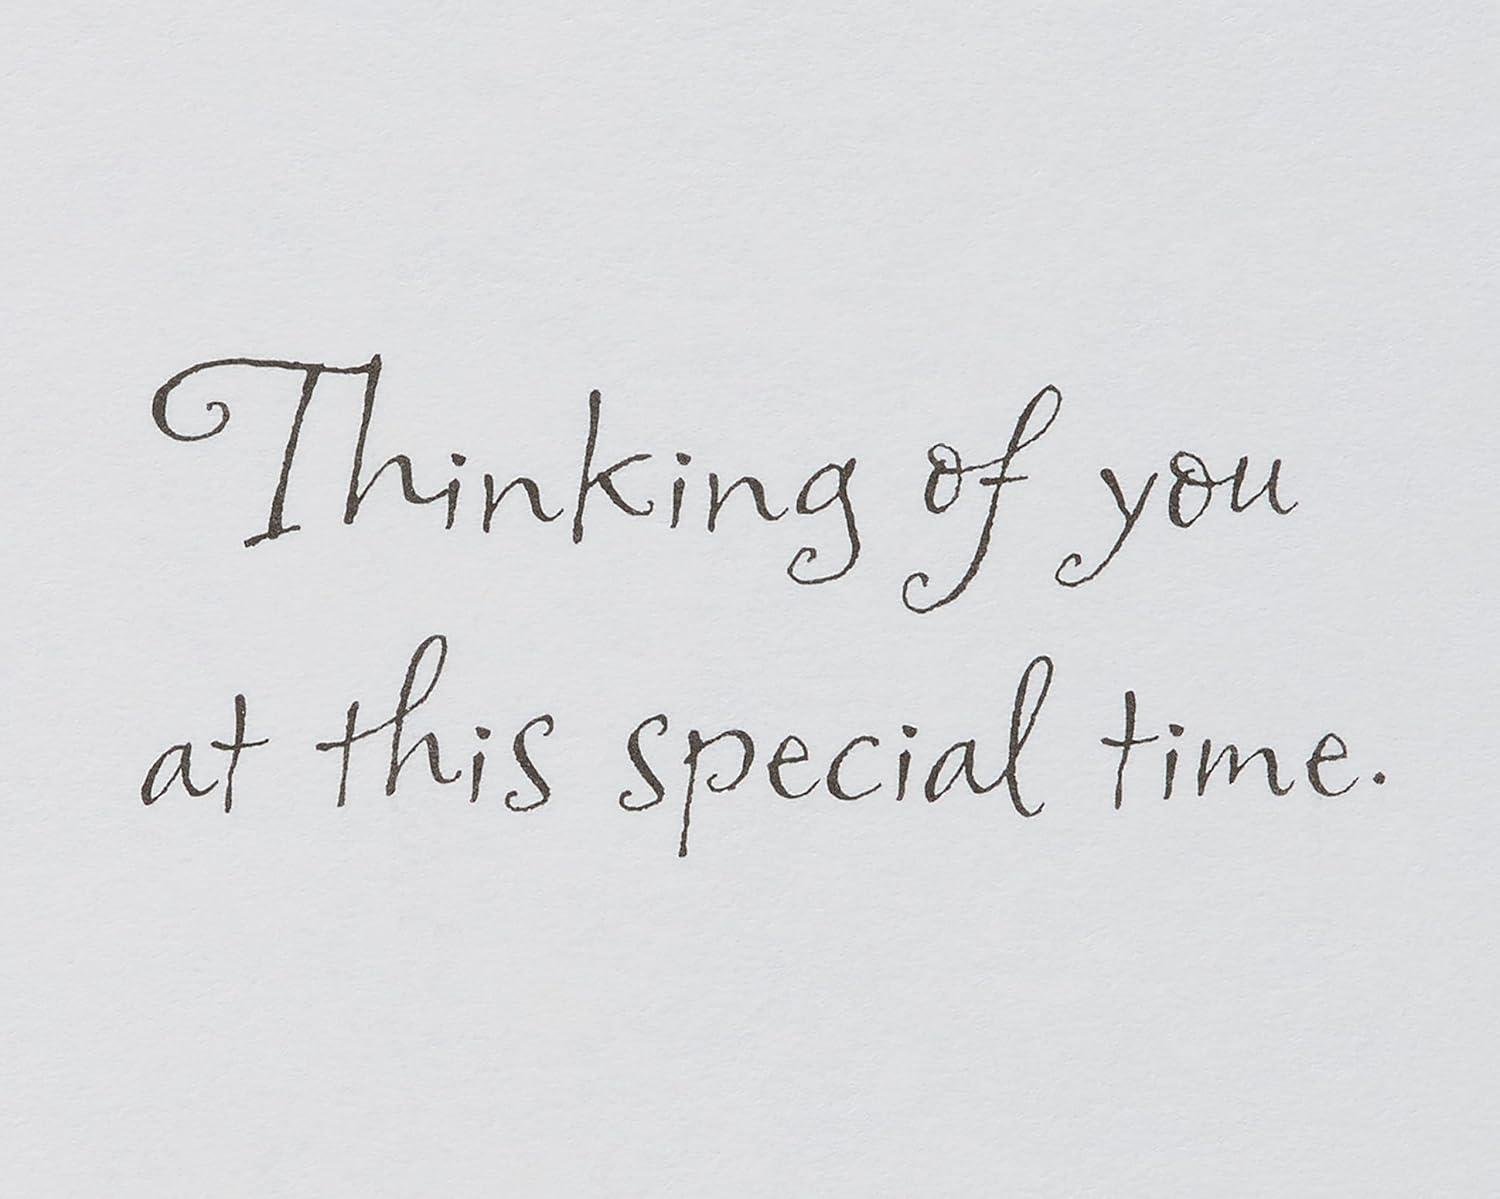 Thinking of you
at this special time.